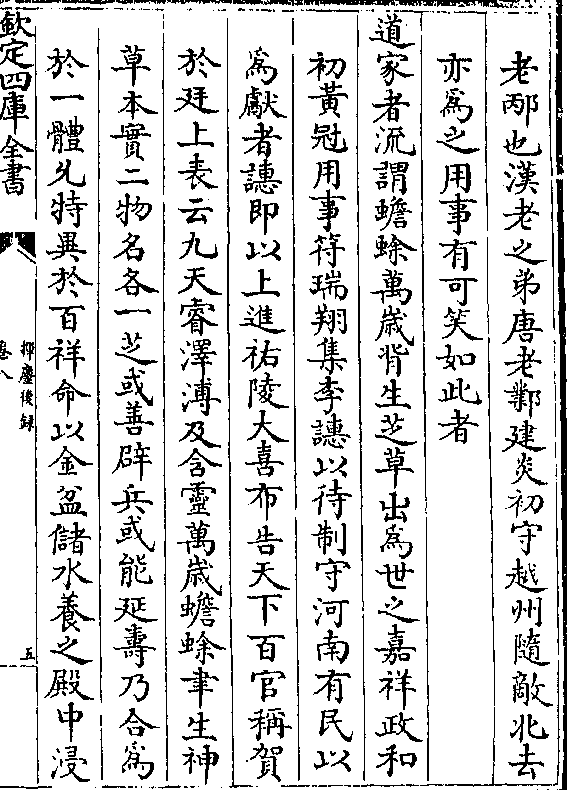 老邴也漢老之弟唐老鄴建炎初守越州隨敵北去
亦爲之用事有可笑如此者
道家者流謂蟾蜍萬歲背生芝草出爲世之嘉祥政和
初黃冠用事符瑞翔集李譓以待制守河南有民以
爲獻者譓即以上進祐陵大喜布告天下百官稱賀
於廷上表云九天睿澤溥及含靈萬歲蟾蜍聿生神
草本實二物名各一芝或善辟兵或能延壽乃合爲
於一體允特異於百祥命以金盆儲水養之殿中浸
欽定四庫全書
揮麈後録
卷八
五